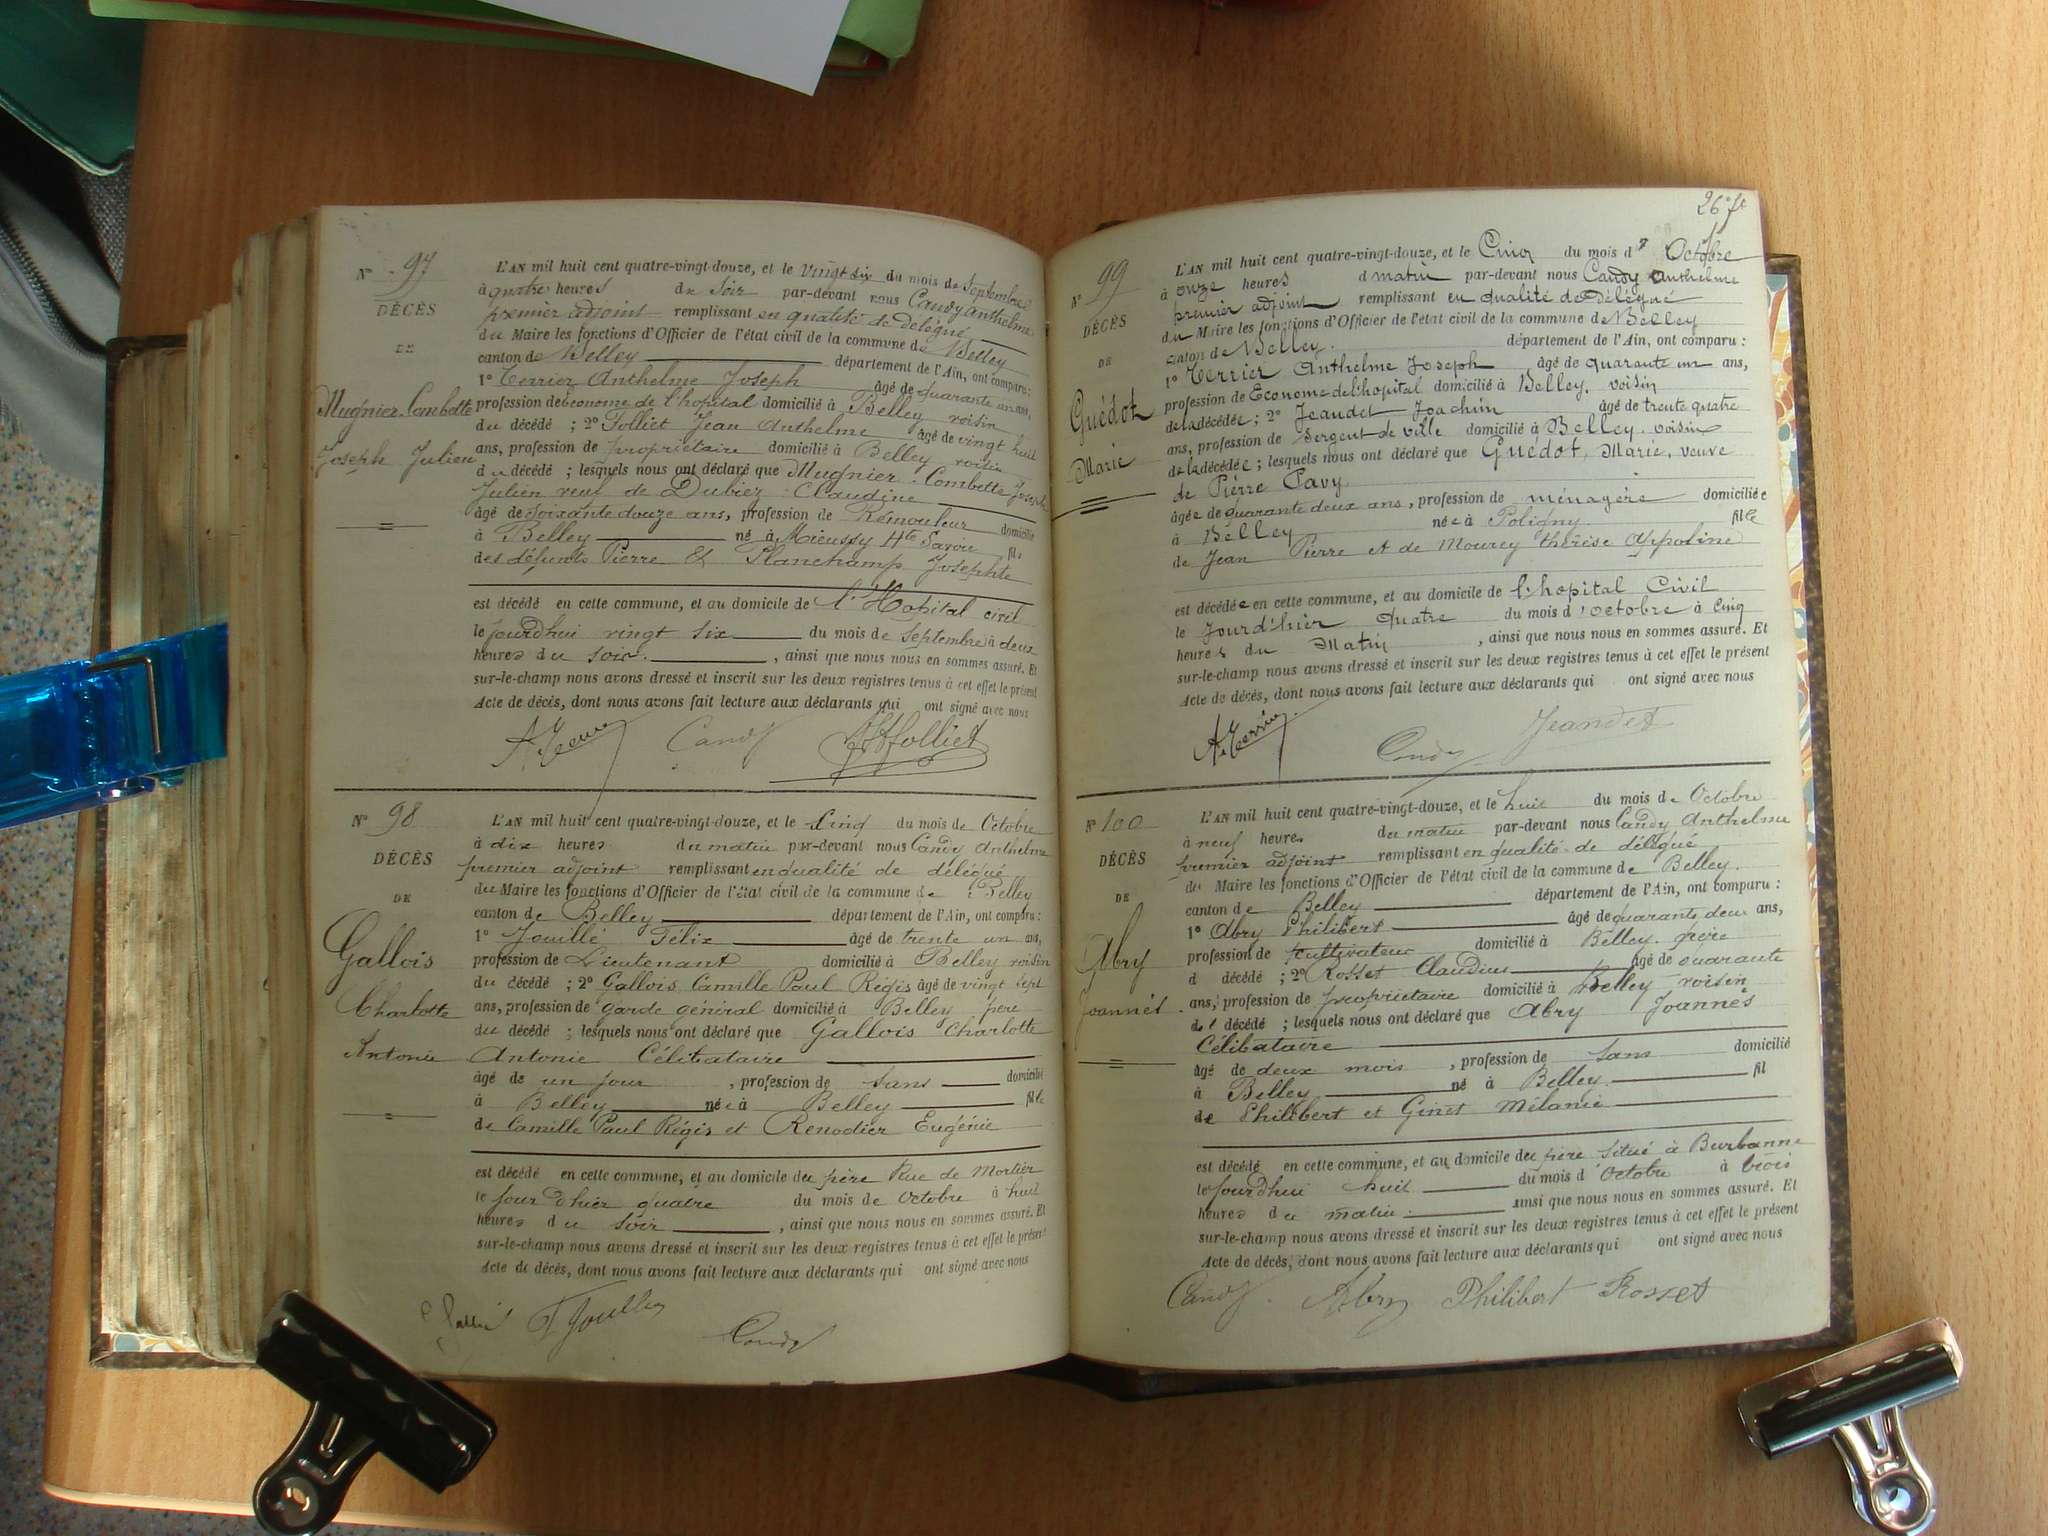 N° 97
DÉCÈS
DE
Mugnier-Combette
Joseph Julien
L'AN mil huit cent quatre-vingt-douze, et le vingt six du mois de Septembre
à quatre heures du Soir par-devant nous Candy Anthelme
premier adjoint remplissant en qualité de délégué
du Maire les fonctions d'Officier de l'état civil de la commune de Belley
canton de Belley département de l'Ain, ont comparu :
1° Terrier Anthelme Joseph âgé de quarante un ans,
profession de économe de l'hopital domicilié à Belley voisin
du décédé ; 2° Folliet Jean Anthelme âgé de vingt huit
ans, profession de propriétaire domicilié à Belley voisin
du décédé ; lesquels nous ont déclaré que Mugnier-Combette Joseph
Julien veuf de Dubiez Claudine
âgé de soixante douze ans, profession de Rémouleur domicilié
à Belley né à Mieussy Hte Savoie fils
des défunts Pierre Et Planchamp Josephte
est décédé en cette commune, et au domicile de l'Hopital civil
le jourdhui vingt six du mois de Septembre à deux
heures du soir. , ainsi que nous nous en sommes assuré. Et
sur-le-champ nous avons dressé et inscrit sur les deux registres tenus à cet effet le présent
Acte de décès, dont nous avons fait lecture aux déclarants qui ont signé avec nous
Candy
Folliet
N° 98
DÉCÈS
DE
Gallois
Charlotte
Antonie
L'AN mil huit cent quatre-vingt-douze, et le Cinq du mois de Octobre
à dix heures du matin par-devant nous Candy Anthelme
premier adjoint remplissant en qualité de délégué
du Maire les fonctions d'Officier de l'état civil de la commune de Belley
canton de Belley département de l'Ain, ont comparu :
1° Jouillé Félix âgé de trente un ans,
profession de Lieutenant domicilié à Belley voisin
du décédé ; 2° Gallois Camille Paul Régis âgé de vingt sept
ans, profession de garde général domicilié à Belley père
du décédé ; lesquels nous ont déclaré que Gallois Charlotte
Antonie Célibataire
âgé de un jour , profession de sans domicilié
à Belley née à Belley fille
de Camille Paul Régis et Renodier Eugénie
est décédé en cette commune, et au domicile du père Rue de Mortier
le jour d'hier quatre du mois de Octobre à huit
heures du soir , ainsi que nous nous en sommes assuré. Et
sur-le-champ nous avons dressé et inscrit sur les deux registres tenus à cet effet le présent
Acte de décès, dont nous avons fait lecture aux déclarants qui ont signé avec nous
Candy
26
N° 99
DÉCÈS
DE
Guédot
Marie
L'AN mil huit cent quatre-vingt-douze, et le Cinq du mois d' Octobre
à onze heures d matin par-devant nous Candy Anthelme
premier adjoint remplissant en qualité de Délégué
du Maire les fonctions d'Officier de l'état civil de la commune de Belley
canton de Belley. département de l'Ain, ont comparu :
1° Terrier Anthelme Joseph âgé de quarante un ans,
profession de Econome de l'hopital domicilié à Belley. voisin
de la décédée ; 2° Jeandet Joachim âgé de trente quatre
ans, profession de Sergent de ville domicilié à Belley. voisin
de la décédée ; lesquels nous ont déclaré que Guédot, Marie, veuve
de Pierre Pavy
âgée de quarante deux ans, profession de ménagère domiciliée
à Belley née à Poligny fille
de Jean Pierre et de Mourey thérèse Appoline
est décédée en cette commune, et au domicile de l'hopital Civil
le Jourd'hier quatre du mois d'octobre à Cinq
heures du Matin , ainsi que nous nous en sommes assuré. Et
sur-le-champ nous avons dressé et inscrit sur les deux registres tenus à cet effet le présent
Acte de décès, dont nous avons fait lecture aux déclarants qui ont signé avec nous
A. Terrier
Candy
Jeandet
N° 100
DÉCÈS
DE
Abry
Joannès
L'AN mil huit cent quatre-vingt-douze, et le huit du mois de Octobre
à neuf heures du matin par-devant nous Candy Anthelme
premier adjoint remplissant en qualité de délégué
du Maire les fonctions d'Officier de l'état civil de la commune de Belley.
canton de Belley département de l'Ain, ont comparu :
1° Abry Philibert âgé de quarante deux ans,
profession de cultivateur domicilié à Belley. père
d décédé ; 2° Rosset Claudius âgé de quarante
ans, profession de propriétaire domicilié à Belley voisin
du décédé ; lesquels nous ont déclaré que Abry Joannès
Célibataire
âgé de deux mois , profession de sans domicilié
à Belley né à Belley. fil
de Philibert et Ginet Mélanie
est décédé en cette commune, et au domicile du père situé à Burbanne
le jourdhui huit du mois d'Octobre à trois
heures du matin. ainsi que nous nous en sommes assuré. Et
sur-le-champ nous avons dressé et inscrit sur les deux registres tenus à cet effet le présent
Acte de décès, dont nous avons fait lecture aux déclarants qui ont signé avec nous
Candy. Abry Philibert Rosset